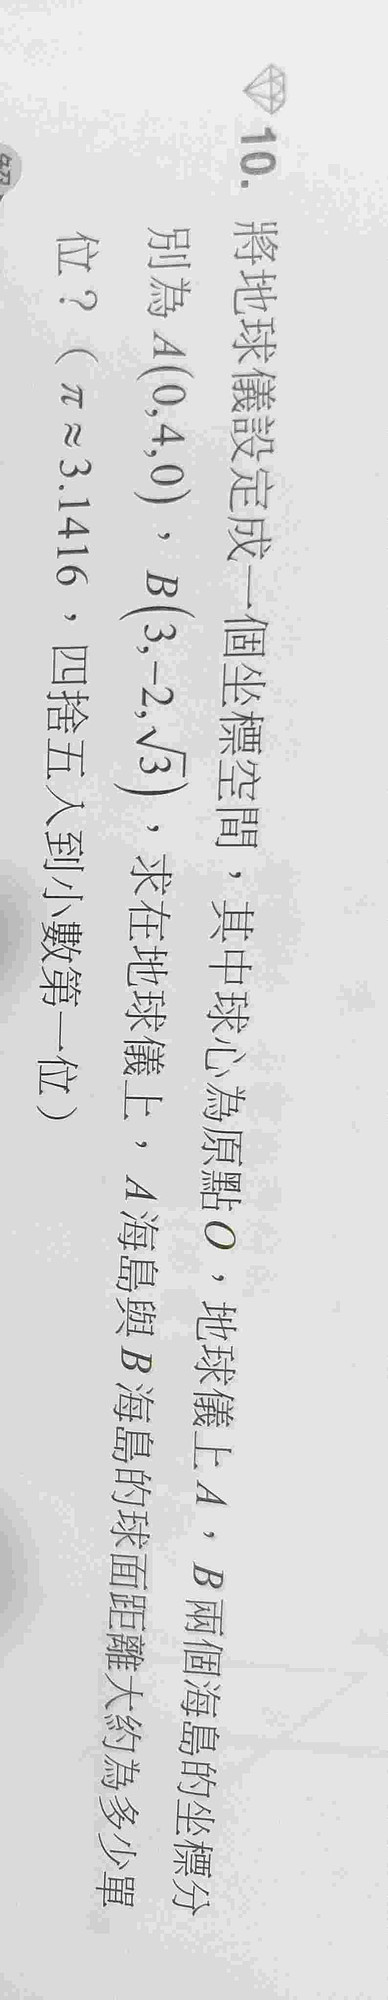 10. 將地球儀設定成一個坐標空間，其中球心為原點 O，地球儀上 A，B 兩個海島的坐標分
別為 A(0,4,0)，B(3,-2,√3)，求在地球儀上，A 海島與 B 海島的球面距離大約為多少單
位？（π≈3.1416，四捨五入到小數第一位）